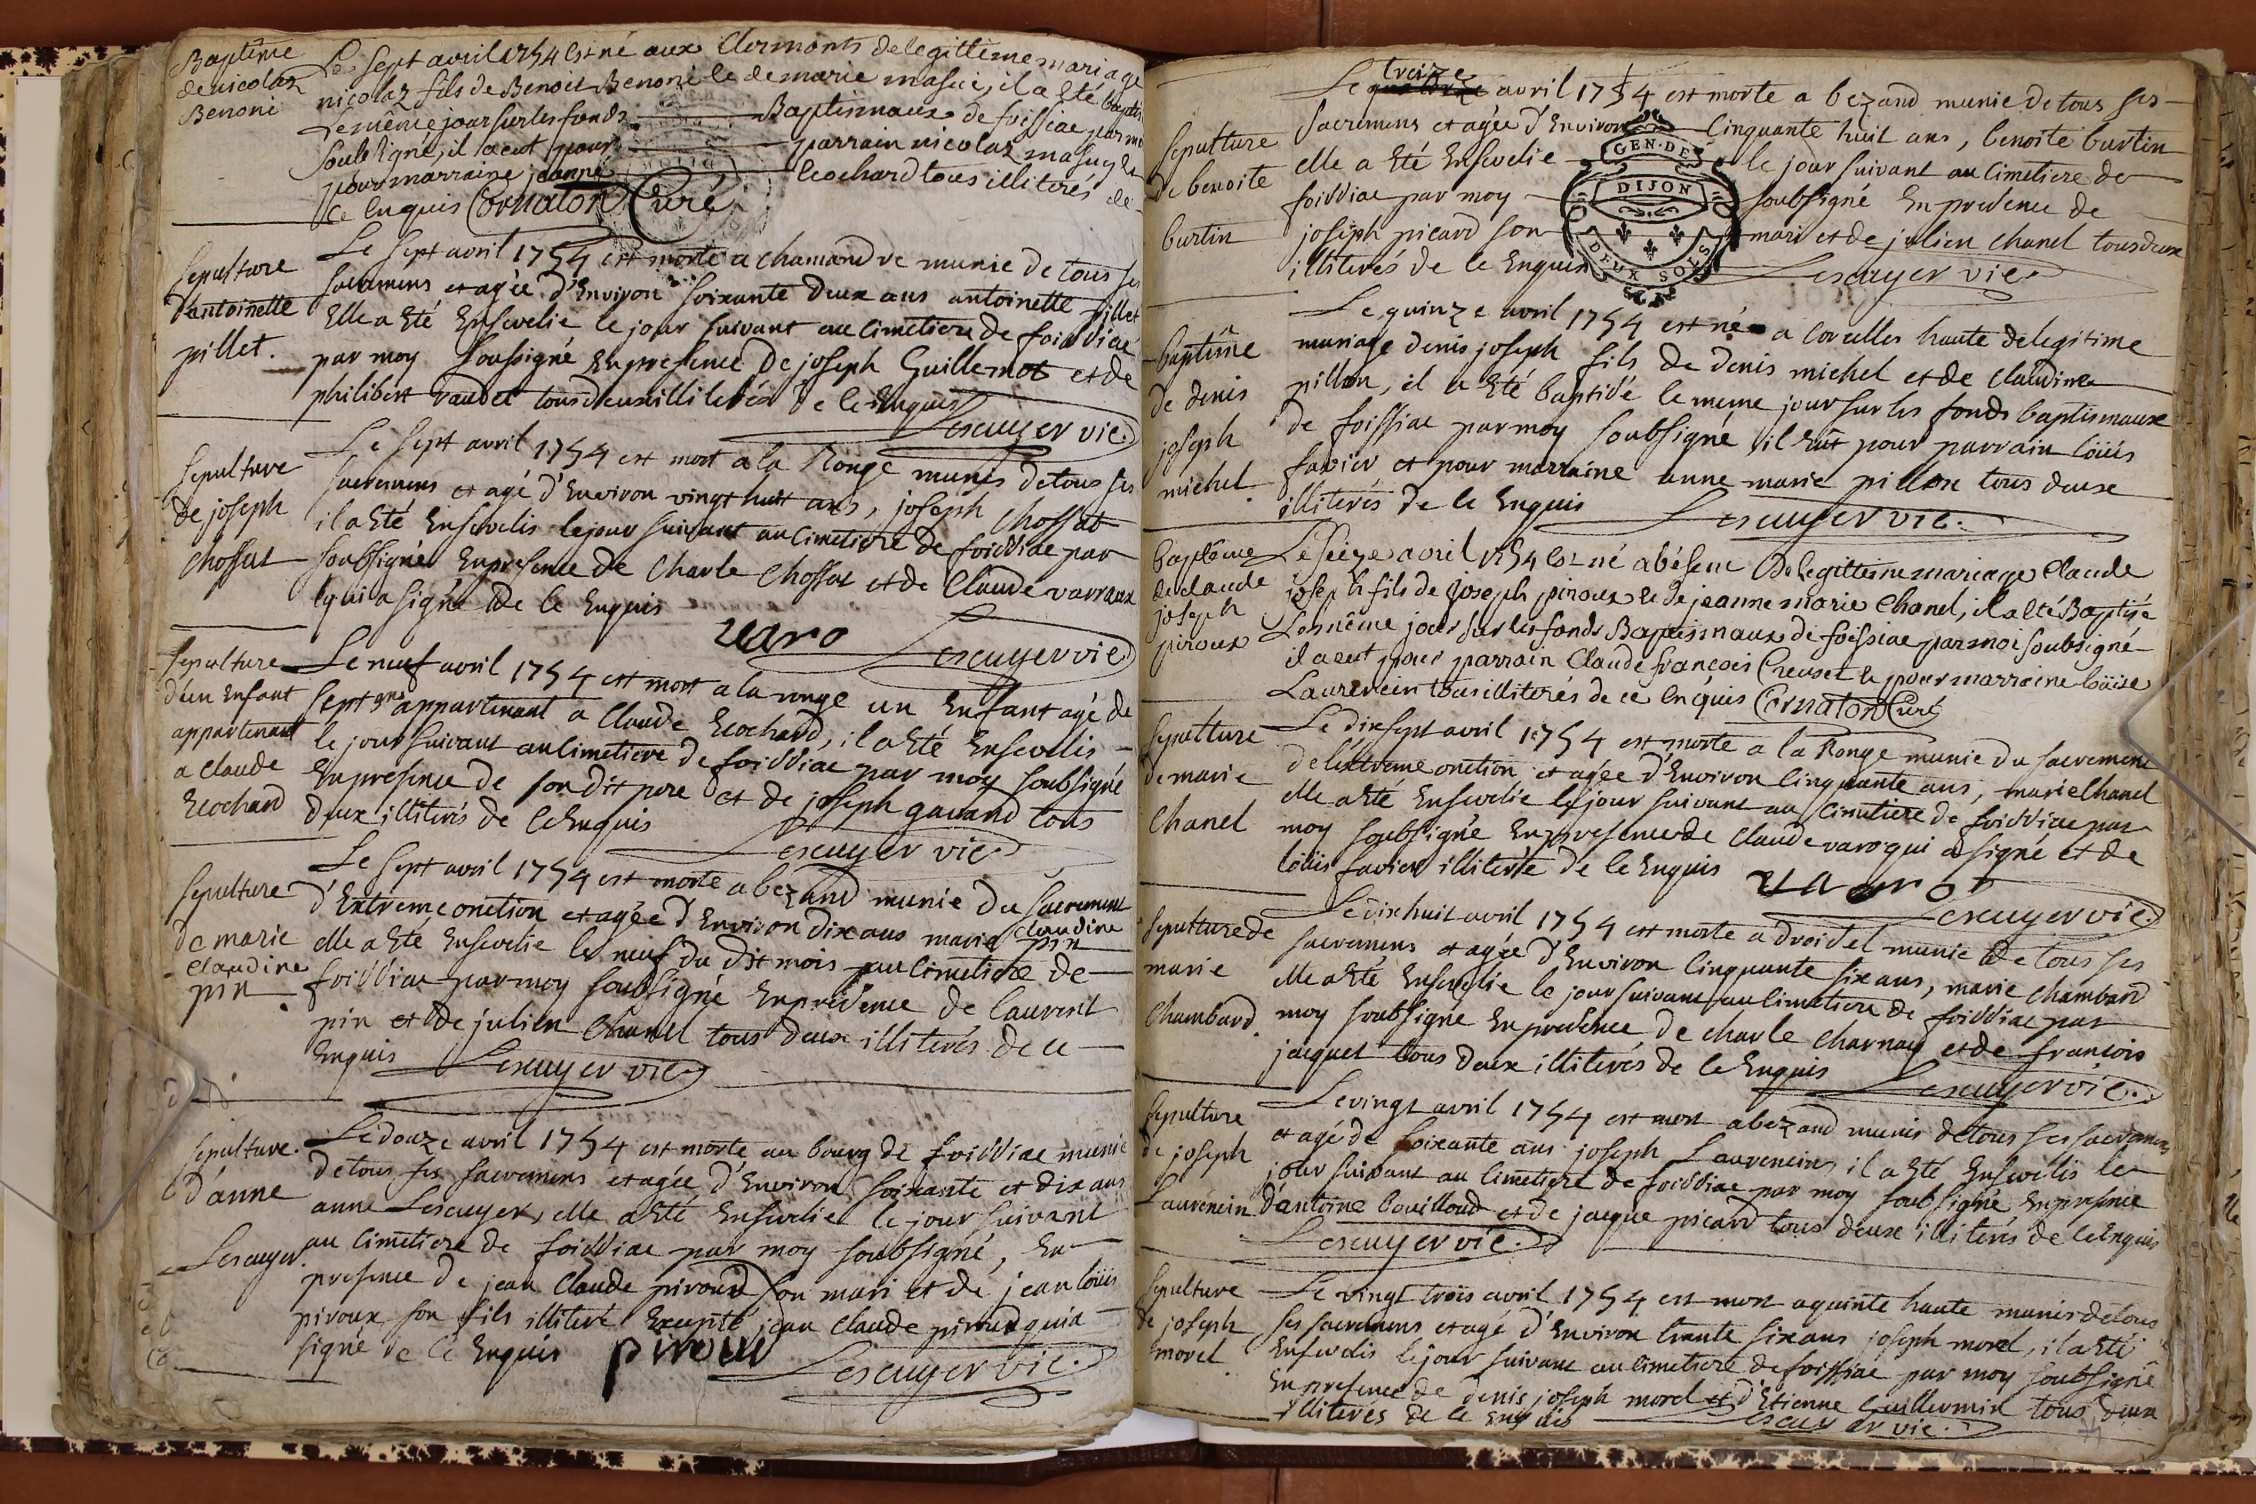 Baptême
de nicolaz
Benoni
Le sept avril 1754 est né aux Clermonts de legittime mariage
nicolaz fils de Benoit Benoni & de marie masuié, il a eté baptisé
le même jour sur les fonds Baptismaux de foissiac par moi
soubsigné, il a eut pour parrain nicolaz masuy &
pour marraine jeanne Ecochard tous illiterés de
ce enquis Cornaton Curé
sepulture
d'antoinette
pillet.
Le sept avril 1754 est morte a chamandre munie de tous ses
sacremens et agée d'Environ soixante deux ans antoinette pillet
Elle a Eté Ensevelie le jour suivant au Cimetiere de foissiac
par moy soussigné En presence de joseph Guillemot et de
philibert vaudet tous deux illiterés de ce Enquis
Lescuyer vic.
sepulture
de joseph
chossat
Le sept avril 1754 est mort a la Ronge munis de tous ses
sacremens et agé d'Environ vingt huit ans, joseph Chossat
il a Eté Ensevelis le jour suivant au Cimetiere de foissiac par
soubsigné En presence de Charle Chossat et de Claude varraux
qui a signé de ce Enquis
varo Lescuyer vic.
sepulture
d'un Enfant
appartenant
a Claude
Ecochard
Le neuf avril 1754 est mort a la ronge un Enfant agé de
sept appartenant a Claude Ecochard, il a Eté Ensevelis
le jour suivant au Cimetiere de foissiac par moy soubsigné
En presence de son dit pere et de joseph gavand tous
deux illiterés de ce Enquis
Lescuyer vic.
sepulture
de marie
claudine
pin
Le sept avril 1754 est morte a bezand munie du sacrement
d'Extreme onction et agée d'Environ dix ans marie claudine pin
elle a Eté Ensevelie le neuf du dit mois au Cimetiere de
foissiac par moy soubsigné En presence de laurent
pin et de julien Chanel tous deux illiterés de ce
Enquis Lescuyer vic.
sepulture
d'anne
Lescuyer.
Le douze avril 1754 est morte au bourg de foissiac munie
de tous ses sacremens et agée d'Environ soixante et dix ans
anne Lescuyer, elle a Eté Ensevelie le jour suivant
au Cimetiere de foissiac par moy soubsigné, En
presence de jean Claude piroud son mari et de jean loüis
piroux son fils illiteré Excepté jean Claude piroud qui a
signé de ce Enquis piroud
Lescuyer vic.
sepulture
de benoite
burtin
treize
Le quatorze avril 1754 est morte a bezand munie de tous ses
sacremens et agée d'Environ Cinquante huit ans, benoite burtin
elle a Eté Ensevelie le jour suivant au Cimetiere de
foissiac par moy soubsigné En presence de
joseph picard son mari et de julien chanel tous deux
illiterés de ce Enquis Lescuyer vic.
GEN. DE
DIJON
DEUX SOLS
baptême
de denis
joseph
michel.
Le quinze avril 1754 est né a Corcelles haute de legitime
mariage denis joseph fils de denis michel et de Claudine
pillon, il a Eté baptisé le meme jour sur les fonds baptismaux
de foissiac par moy soubsigné il Eut pour parrain loüis
favier et pour marraine anne marie pillon tous deux
illiterés de ce Enquis Lescuyer vic.
baptême
de claude
joseph
piroux
Le seize avril 1754 est né a bésenc de legittime mariage Claude
joseph fils de joseph piroux & de jeanne marie Chanel, il a eté Baptisé
Le même jour sur les fonds Baptismaux de foissiac par moi soubsigné
il a eut pour parrain Claude françois Creuset & pour marraine loüise
Laurencin tous illiterés de ce enquis Cornaton Curé
sepulture
de marie
Chanel
Le dix sept avril 1754 est morte a la Ronge munie du sacrement
de l'extreme onction et agée d'Environ Cinquante ans, marie Chanel
elle a Eté Ensevelie le jour suivant au Cimetiere de foissiac par
moy soubsigné En presence de Claude varo qui a signé et de
loüis favier illiteré de ce Enquis varo
Lescuyer vic.
sepulture de
marie
Chambard.
Le dix huit avril 1754 est morte a droisel munie de tous ses
sacremens et agée d'Environ Cinquante six ans, marie Chambard
elle a Eté Ensevelie le jour suivant au Cimetiere de foissiac par
moy soubsigné En presence de charle Charnay et de francois
jacquet tous deux illiterés de ce Enquis
Lescuyer vic.
sepulture
de joseph
Laurencin
Le vingt avril 1754 est mort a bezand munis de tous ses sacremens
et agé de soixante ans joseph Laurencin il a Eté Ensevelis le
jour suivant au Cimetiere de foissiac par moy soubsigné En presence
d'antoine bouilloud et de jacque picard tous deux illiterés de ce Enquis
Lescuyer vic.
sepulture
de joseph
morel
Le vingt trois avril 1754 est mort a quinte haute munis de tous
ses sacremens et agé d'Environ trante six ans joseph morel, il a Eté
Ensevelis le jour suivant au Cimetiere de foissiac par moy soubsigné
En presence de denis joseph morel et d'Etienne Guillermin tous deux
illiterés de ce Enquis Lescuyer vic.